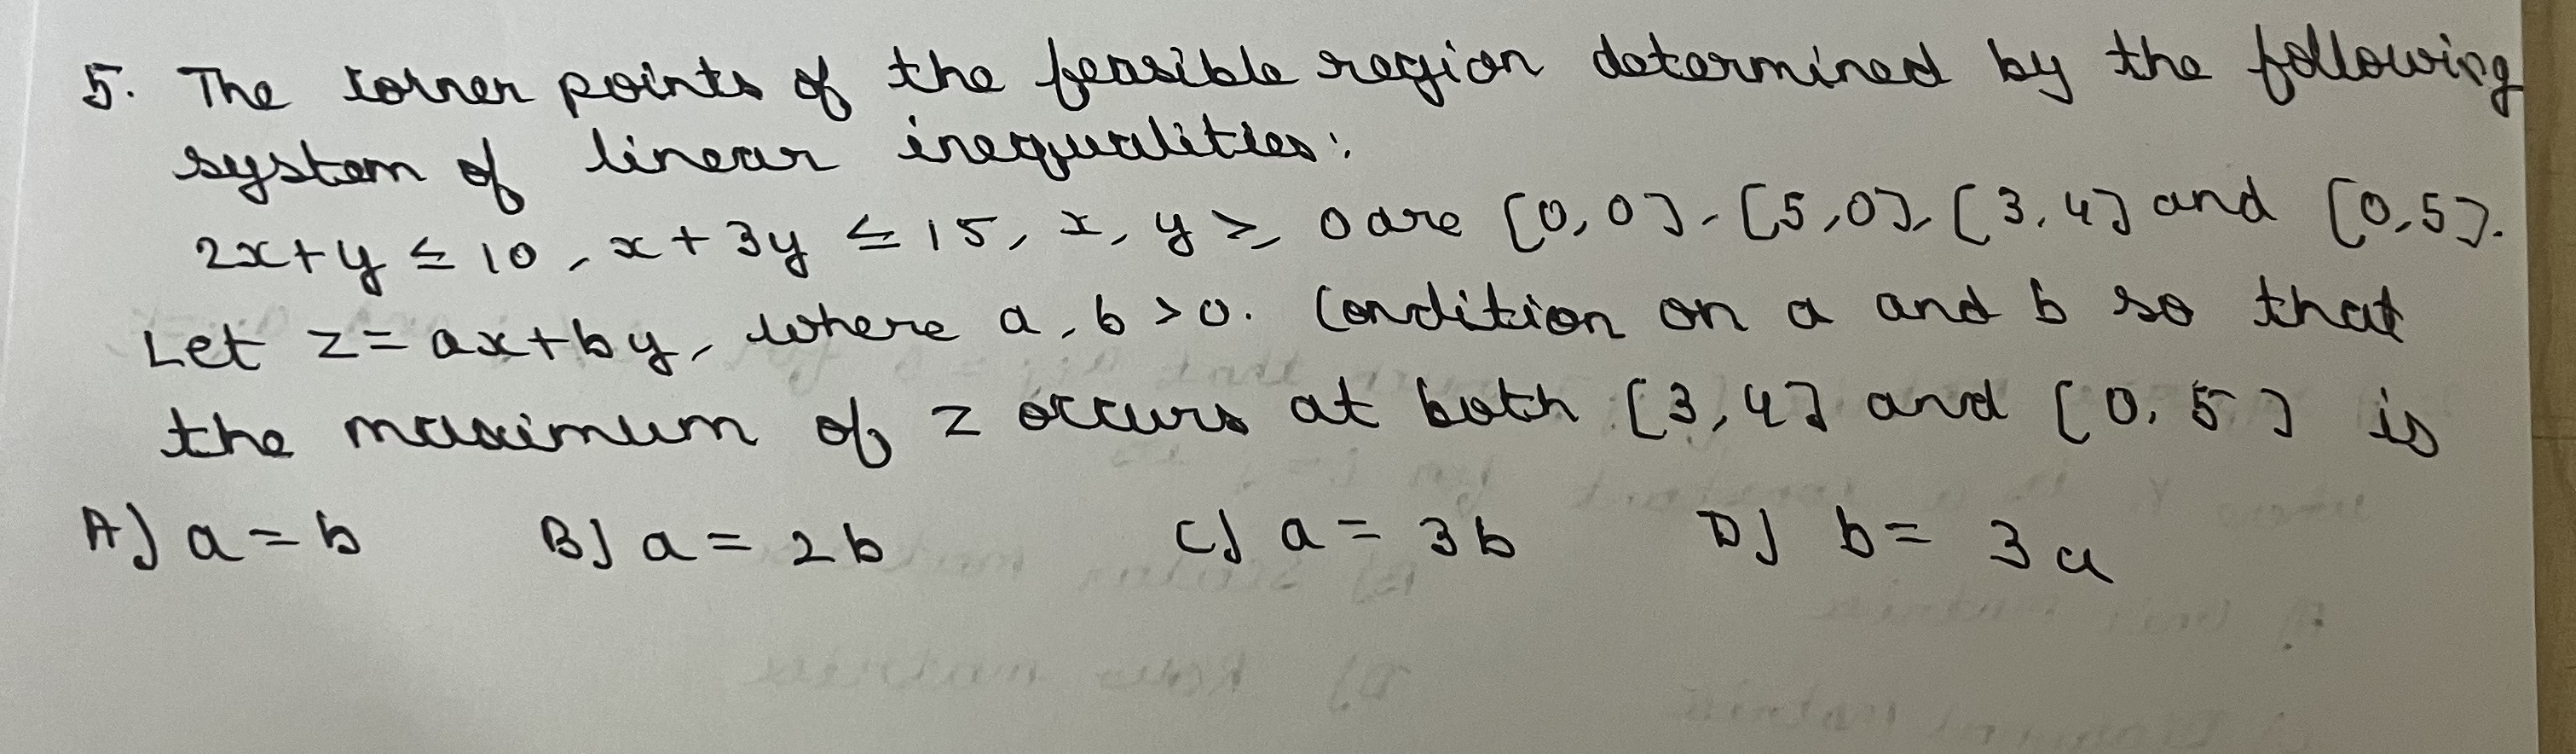 5. The corner points of the feasible region determined by the following
system of linear inequalities:
2x+y ≤ 10, x+3y ≤ 15, x, y ≥ 0 are [0,0], [5,0], [3,4] and [0,5].
Let z=ax+by, where a, b > 0. Condition on a and b so that
the maximum of z occurs at both [3,4] and [0,5] is
A] a=b B] a=2b C] a=3b D] b=3a